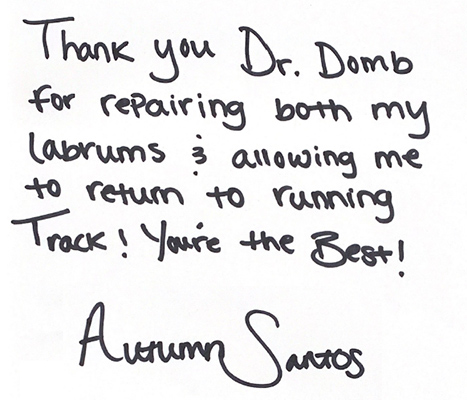 Thank you Dr. Domb
for repairing both my
labrums & allowing me
to return to running
Track! You're the Best!
Autumn Santos